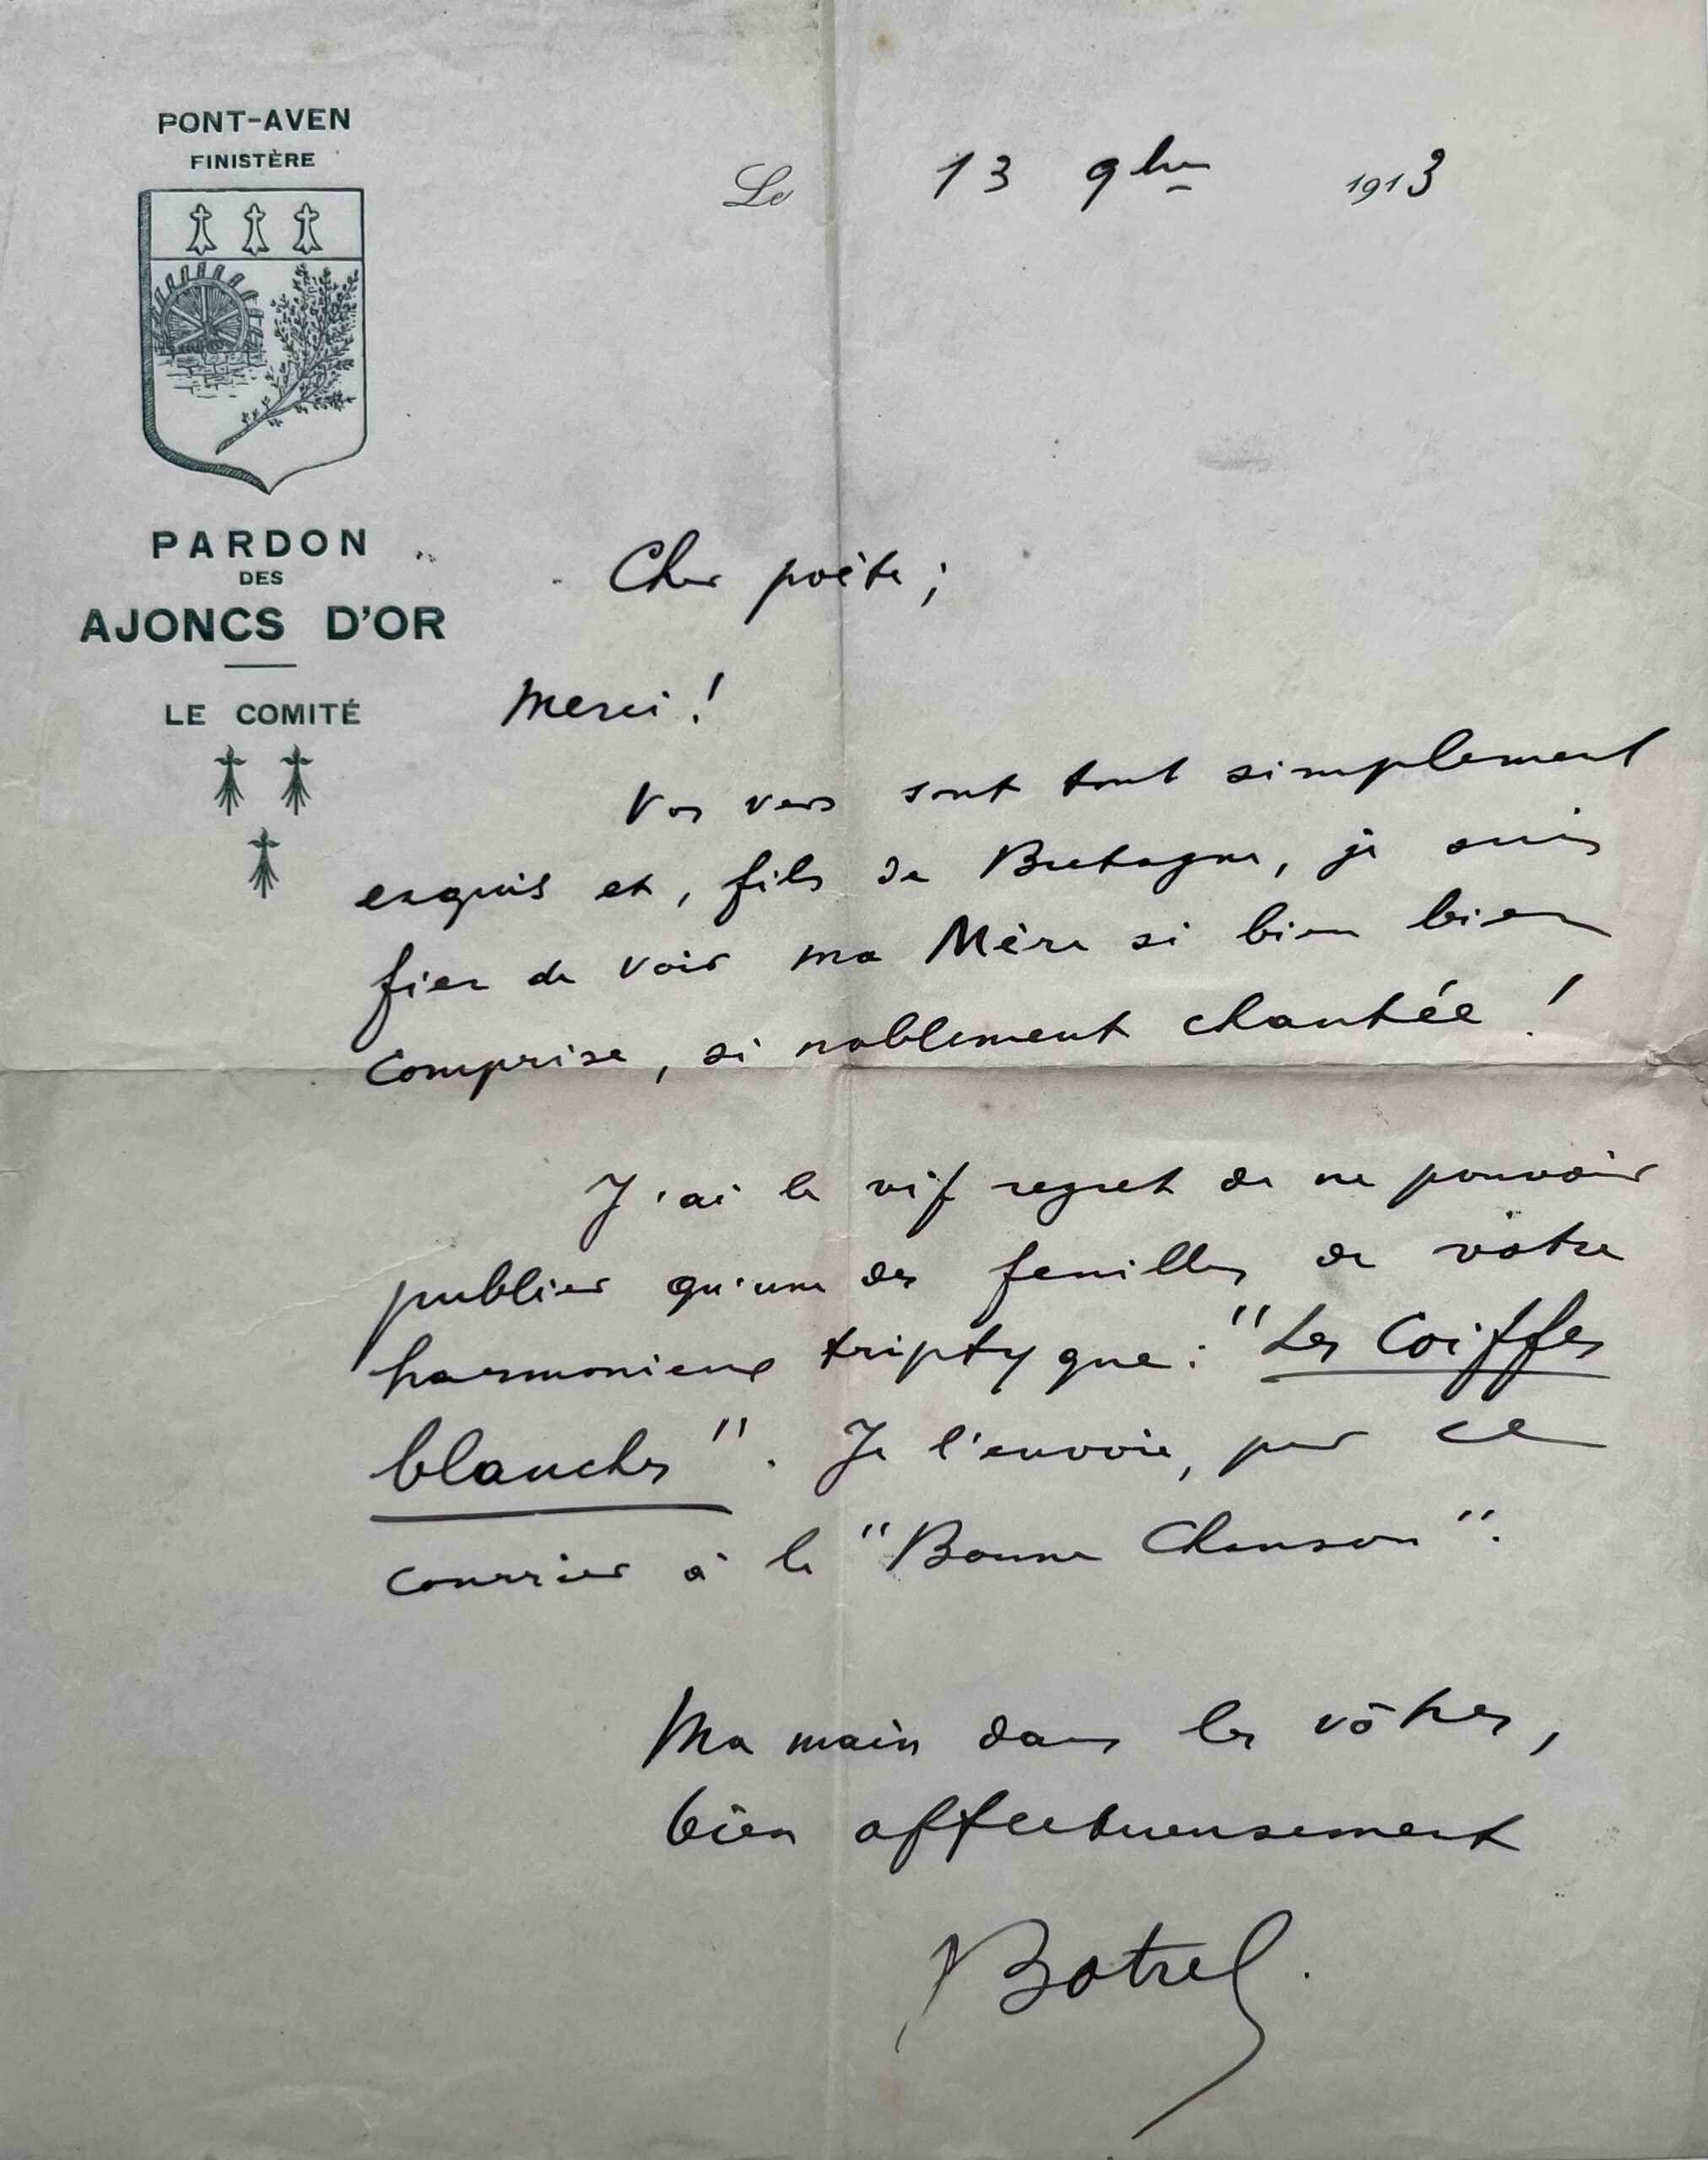 PONT-AVEN
FINISTÈRE
Le 13 9bre 1913
PARDON
DES
AJONCS D'OR
LE COMITÉ
Cher poète ;
Merci !
Vos vers sont tout simplement
exquis et, fils de Bretagne, je suis
fier de voir ma Mère si bien bien
comprise, si noblement chantée !
J'ai le vif regret de ne pouvoir
publier qu'une des feuilles de votre
harmonieux triptyque : "Les Coiffes
blanches". Je l'envoie, par ce
courrier à la "Bonne Chanson".
Ma main dans les vôtres,
bien affectueusement
Botrel.